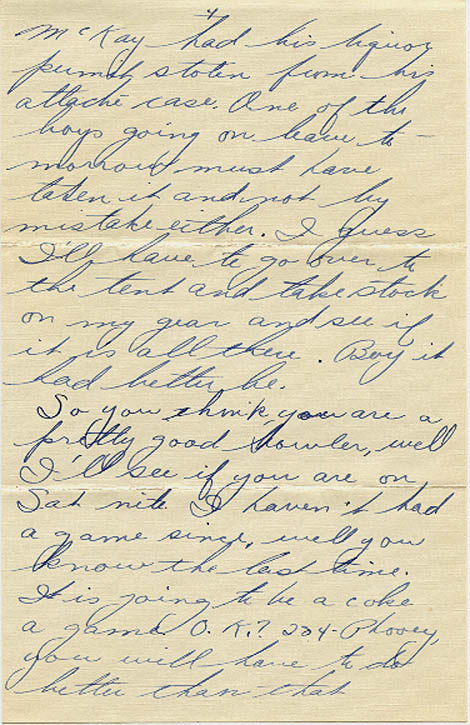 4
McKay had his liquor
permit stolen from his
attaché case. One of the
boys going on leave to-
morrow must have
taken it and not by
mistake either. I guess
I'll have to go over to
the tent and take stock
on my gear and see if
it is all there. Boy it
had better be.
So you think you are a
pretty good bowler, well
I'll see if you are on
Sat nite. I haven't had
a game since, well you
know the last time.
It is going to be a coke
a game. O.K.? 204-Phooey,
you will have to do
better than that